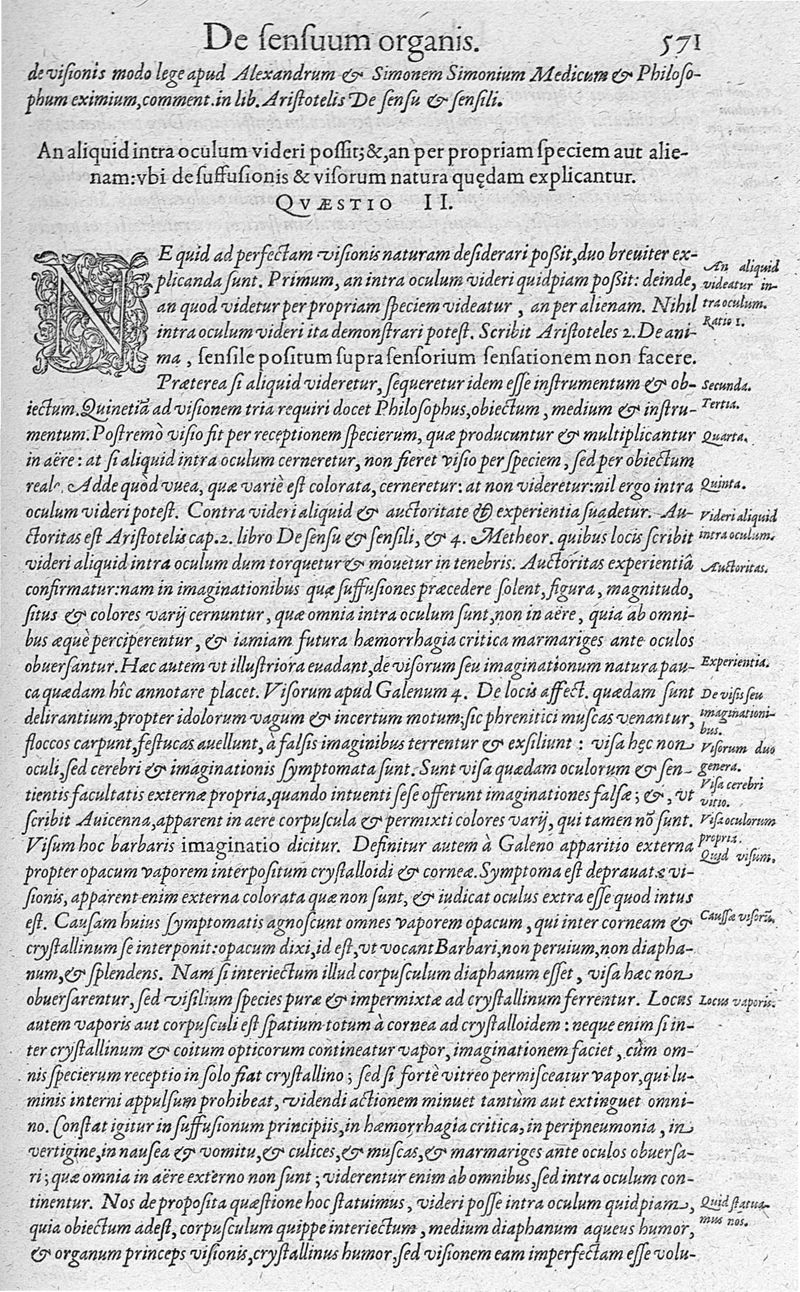 De sensuum organis. 571
de visionis modo lege apud Alexandrum & Simonem Simonium Medicum & Philoso-
phum eximium, comment. in lib. Aristotelis De sensu & sensili.
An aliquid intra oculum videri possit; &, an per propriam speciem aut alie-
nam: vbi de suffusionis & visorum natura quędam explicantur.
QVÆSTIO II.
NE quid ad perfectam visionis naturam desiderari possit, duo breuiter ex-
plicanda sunt. Primum, an intra oculum videri quidpiam possit: deinde,
an quod videtur per propriam speciem videatur, an per alienam. Nihil
intra oculum videri ita demonstrari potest. Scribit Aristoteles 2. De ani-
ma, sensile positum supra sensorium sensationem non facere.
Præterea si aliquid videretur, sequeretur idem esse instrumentum & ob-
iectum. Quinetiã ad visionem tria requiri docet Philosophus, obiectum, medium & instru-
mentum. Postremò visio fit per receptionem specierum, quæ producuntur & multiplicantur
in aëre: at si aliquid intra oculum cerneretur, non fieret visio per speciem, sed per obiectum
reale. Adde quòd vuea, quæ variè est colorata, cerneretur: at non videretur: nil ergo intra
oculum videri potest. Contra videri aliquid & auctoritate & experientia suadetur. Au-
ctoritas est Aristotelis cap. 2. libro De sensu & sensili, & 4. Metheor. quibus locis scribit
videri aliquid intra oculum dum torquetur & mouetur in tenebris. Auctoritas experientiâ
confirmatur: nam in imaginationibus quæ suffusiones præcedere solent, figura, magnitudo,
situs & colores varij cernuntur, quæ omnia intra oculum sunt, non in aëre, quia ab omni-
bus æquè perciperentur, & iamiam futura hæmorrhagia critica marmariges ante oculos
obuersantur. Hæc autem vt illustriora euadant, de visorum seu imaginationum natura pau-
ca quædam hîc annotare placet. Visorum apud Galenum 4. De locis affect. quædam sunt
delirantium, propter idolorum vagum & incertum motum: sic phrenitici muscas venantur,
floccos carpunt, festucas auellunt, à falsis imaginibus terrentur & exsiliunt: visa hęc non
oculi, sed cerebri & imaginationis symptomata sunt. Sunt visa quædam oculorum & sen-
tientis facultatis externæ propria, quando intuenti sese offerunt imaginationes falsæ; &, vt
scribit Auicenna, apparent in aere corpuscula & permixti colores varij, qui tamen nõ sunt.
Visum hoc barbaris imaginatio dicitur. Definitur autem à Galeno apparitio externa
propter opacum vaporem interpositum crystalloidi & corneæ. Symptoma est deprauatæ vi-
sionis, apparent enim externa colorata quæ non sunt, & iudicat oculus extra esse quod intus
est. Causam huius symptomatis agnoscunt omnes vaporem opacum, qui inter corneam &
crystallinum se interponit: opacum dixi, id est, vt vocant Barbari, non peruium, non diapha-
num, & splendens. Nam si interiectum illud corpusculum diaphanum esset, visa hæc non
obuersarentur, sed visilium species puræ & impermixtæ ad crystallinum ferrentur. Locus
autem vaporis aut corpusculi est spatium totum à cornea ad crystalloidem: neque enim si in-
ter crystallinum & coitum opticorum contineatur vapor, imaginationem faciet, cùm om-
nis specierum receptio in solo fiat crystallino; sed si fortè vitreo permisceatur vapor, qui lu-
minis interni appulsum prohibeat, videndi actionem minuet tantùm aut extinguet omni-
no. Constat igitur in suffusionum principiis, in hæmorrhagia critica, in peripneumonia, in
vertigine, in nausea & vomitu, & culices, & muscas, & marmariges ante oculos obuersa-
ri; quæ omnia in aëre externo non sunt; viderentur enim ab omnibus, sed intra oculum con-
tinentur. Nos de proposita quæstione hoc statuimus, videri posse intra oculum quidpiam,
quia obiectum adest, corpusculum quippe interiectum, medium diaphanum aqueus humor,
& organum princeps visionis, crystallinus humor, sed visionem eam imperfectam esse volu-
An aliquid
videatur in-
tra oculum.
Ratio 1.
Secunda.
Tertia.
Quarta.
Quinta.
Videri aliquid
intra oculum.
Auctoritas.
Experientia.
De visis seu
imaginationi-
bus.
Visorum duo
genera.
Visa cerebri
vitio.
Visa oculorum
propria.
Quid visum.
Caussæ visorũ.
Locus vaporis.
Quid statua-
mus nos.